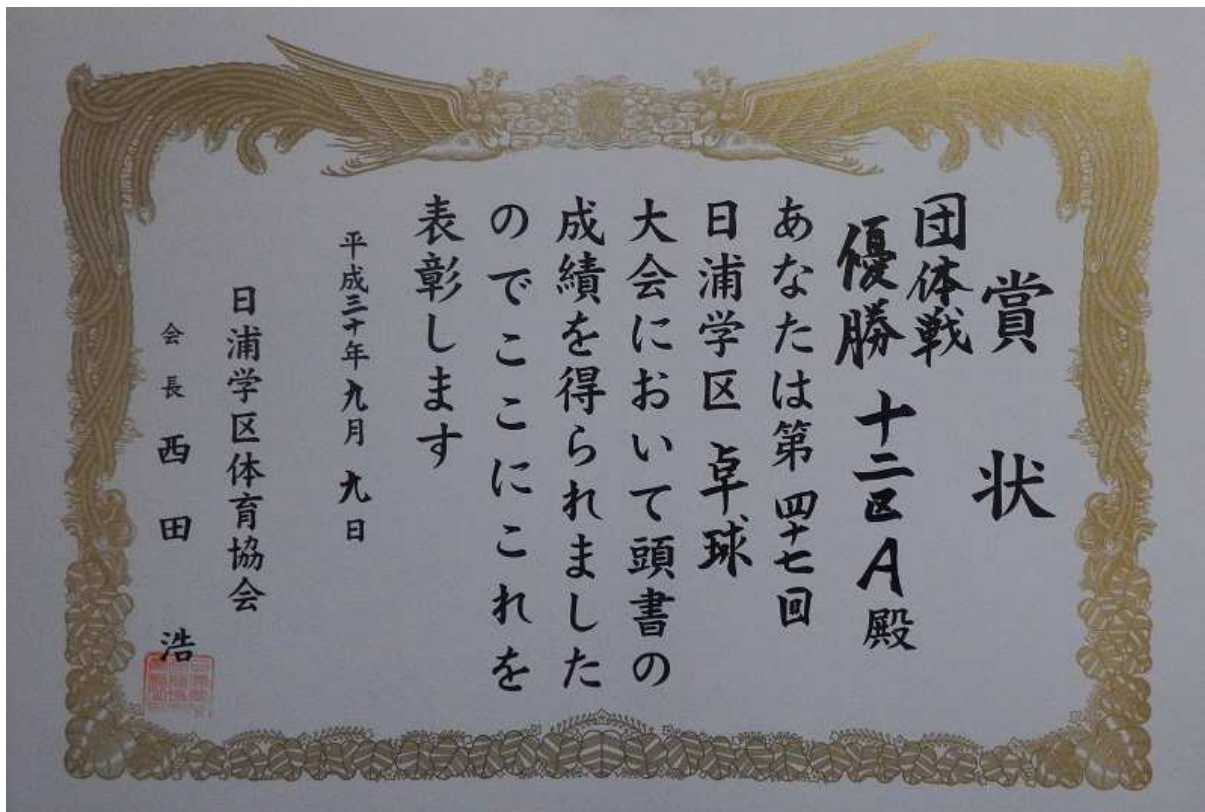 賞状
団体戦
優勝 十二区A殿
あなたは第四十七回
日浦学区 卓球
大会において頭書の
成績を得られました
のでここにこれを
表彰します
平成三十年九月九日
日浦学区体育協会
会長 西田 浩